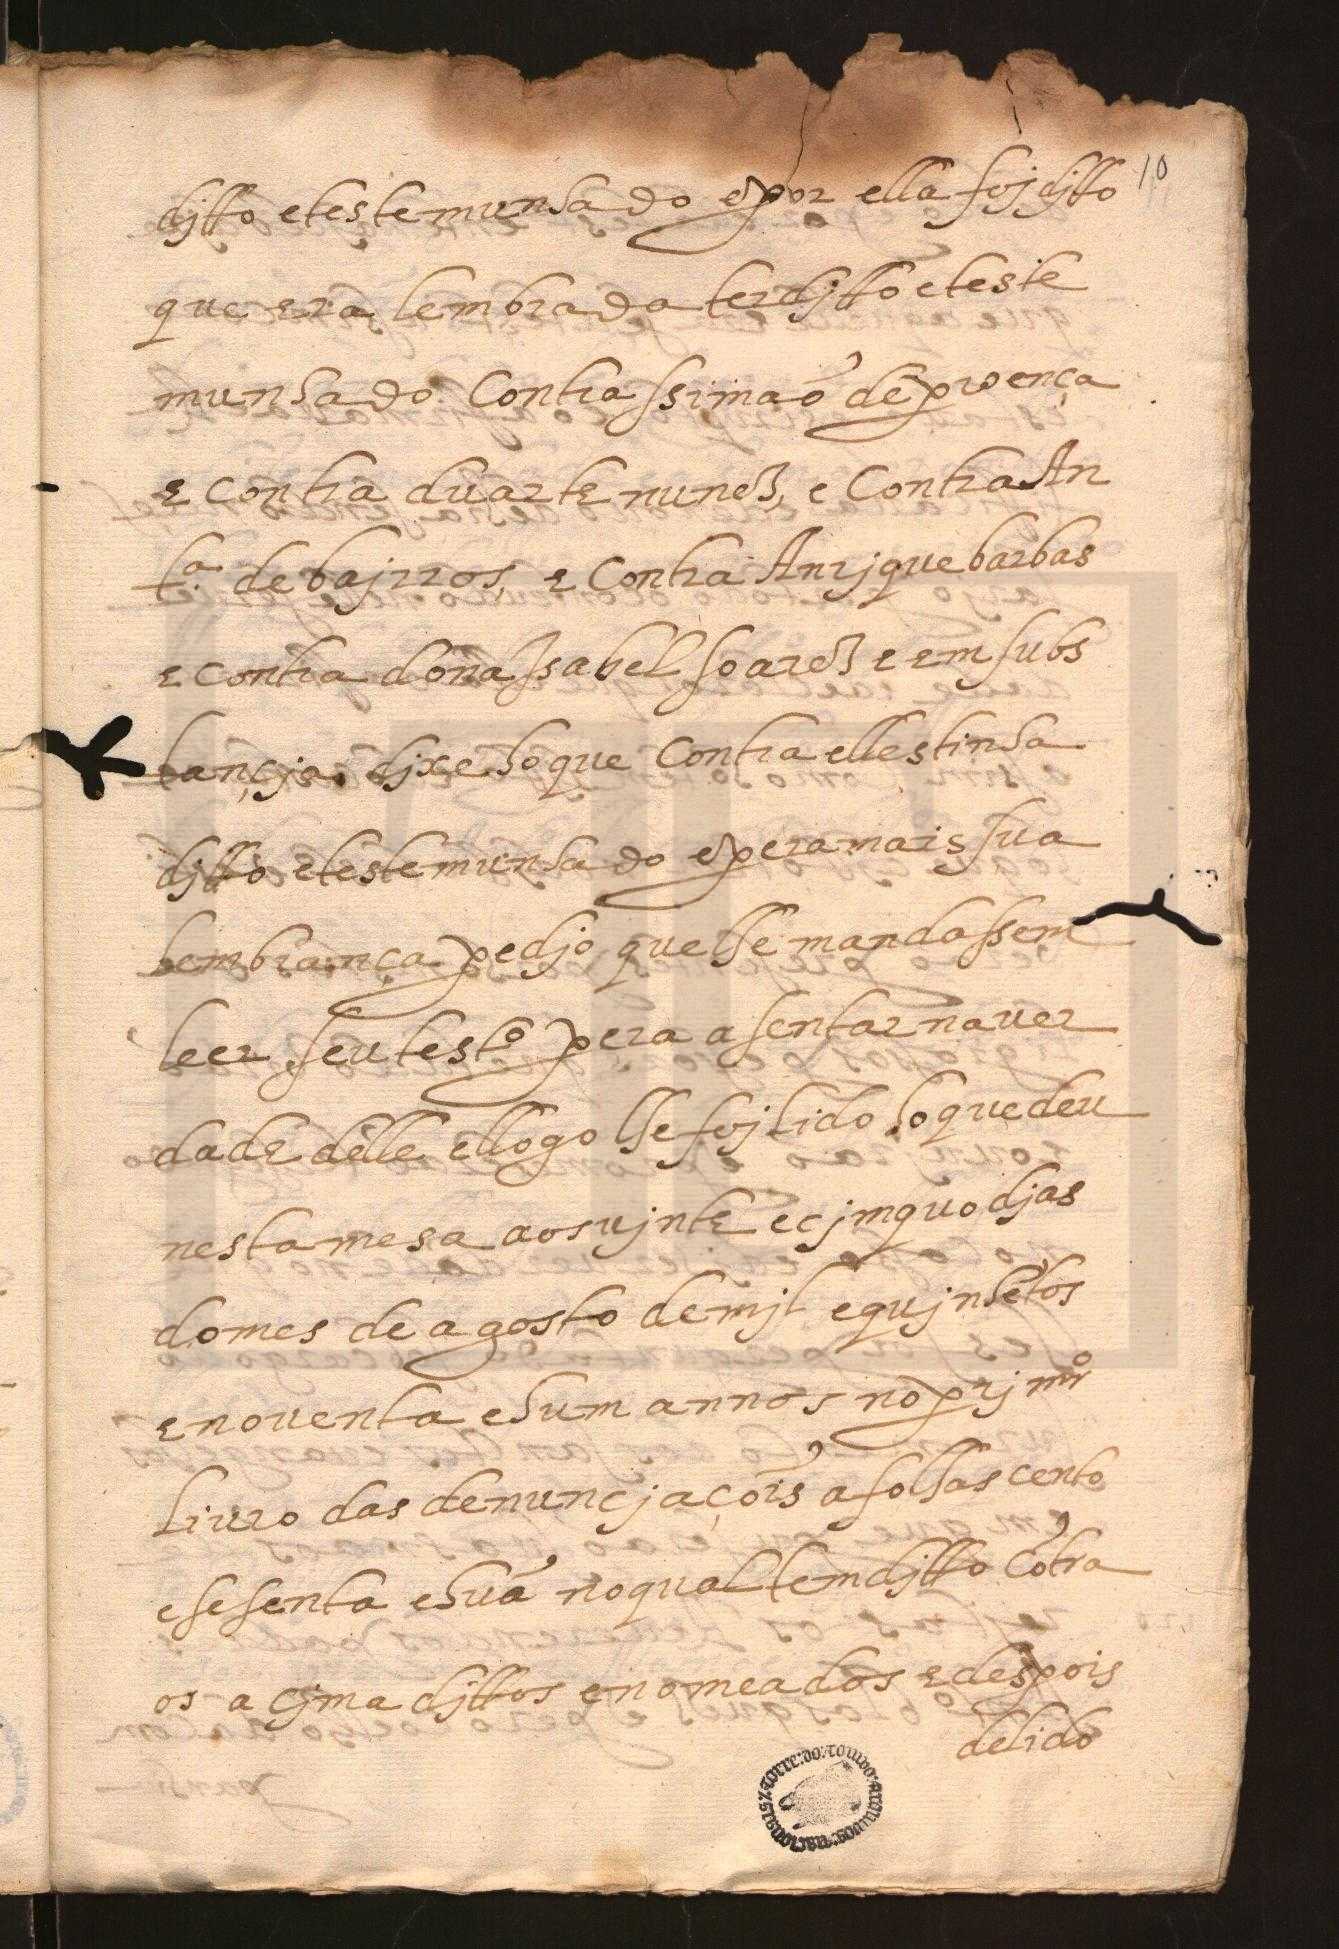 10
djtto e testemunhado e por ella foj djtto
que era lembrada ter djtto e teste
munhado contra ssimaõ de proença
e contra duarte nunez, e contra An
tª. de bajrros, e contra Anrjque barbas
e contra dona Jsabel soarez e em subs
tançja dixe ho que contra elles tinha
djtto e testemunhado e pera mais sua
lembrança pedjo que lhe mandassem
leer seu testº pera asentar na ver
dade delle e llogo lhe foj lido ho que deu
nesta mesa aos vjnte e cjmquo djas
do mes de agosto de mjl e qujnhẽtos
e noventa e hum annos no prjmrº
livro das denuncjaçõis a folhas cento
e sesenta e huã no qual tem djtto cõtra
os a cjma djttos e nomeados e despois
de lido
torre:do:tombo